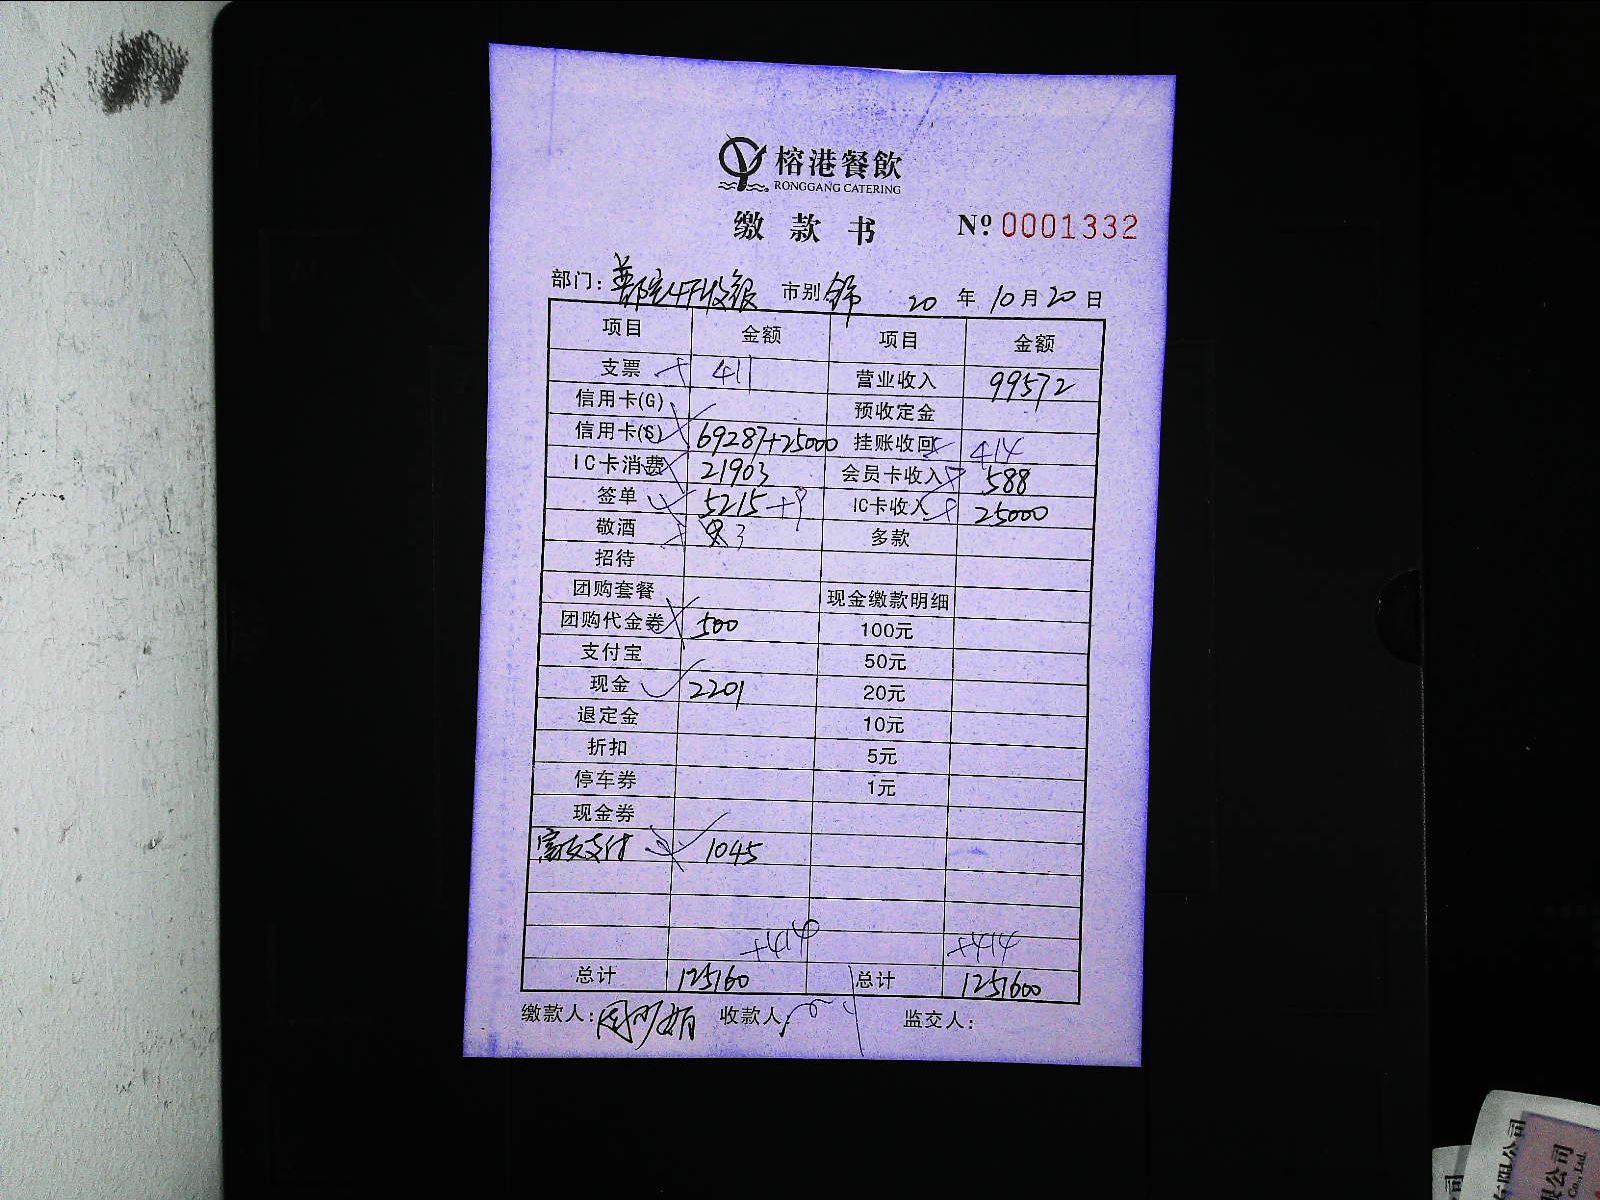 榕港餐飲
RONGGANG CATERING
缴款书 Nº 0001332
部门: 4F收银 市别 20 年 10 月 20 日
项目 金额 项目 金额
支票 + 411 营业收入 99572
信用卡(G) 预收定金
信用卡(S) 69287+25000 挂账收回 414
IC卡消费 21903 会员卡收入 588
签单 5215 +9 IC卡收入 25000
敬酒 3 多款
招待
团购套餐 现金缴款明细
团购代金券 500 100元
支付宝 50元
现金 2201 20元
退定金 10元
折扣 5元
停车券 1元
现金券
支付 1045
+414 +414
总计 125160 总计 1251600
缴款人: 收款人: 监交人:
限公司
公司
Co., Ltd.